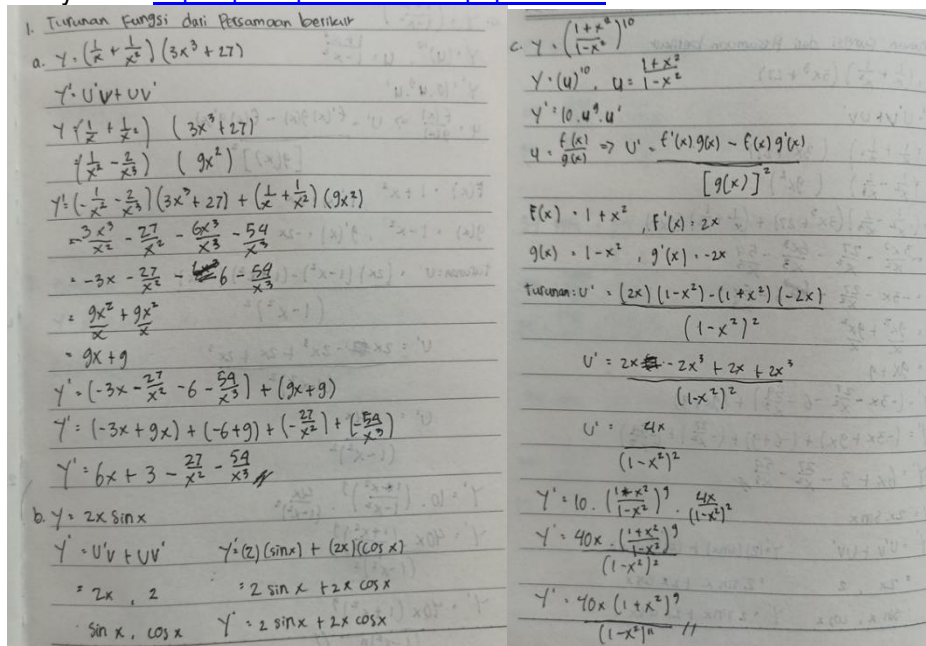 1. Turunan Fungsi dari Persamaan berikut
a. y = (1/x + 1/x²) (3x³ + 27)
y' = u'v + uv'
y = (1/x + 1/x²) (3x³ + 27)
(1/x² - 2/x³) (9x²)
y' = (-1/x² - 2/x³) (3x³ + 27) + (1/x + 1/x²) (9x²)
= -3x³/x² - 27/x² - 6x³/x³ - 54/x³
= -3x - 27/x² - 6 - 54/x³
= 9x²/x + 9x²/x
= 9x + 9
y' = (-3x - 27/x² - 6 - 54/x³) + (9x + 9)
y' = (-3x + 9x) + (-6 + 9) + (-27/x²) + (-54/x³)
y' = 6x + 3 - 27/x² - 54/x³ //
b. y = 2x sin x
y' = u'v + uv' y' = (2) (sin x) + (2x) (cos x)
= 2x , 2 = 2 sin x + 2x cos x
sin x , cos x y' = 2 sin x + 2x cosx
c. y = (1 + x² / 1 - x²)¹⁰
y = (u)¹⁰, u = 1 + x² / 1 - x²
y' = 10 . u⁹ . u'
u = f(x)/g(x) => u' = f'(x) g(x) - f(x) g'(x) / [g(x)]²
f(x) = 1 + x² , f'(x) = 2x
g(x) = 1 - x² , g'(x) = -2x
Turunan : u' = (2x) (1 - x²) - (1 + x²) (-2x) / (1 - x²)²
u' = 2x - 2x³ + 2x + 2x³ / (1 - x²)²
u' = 4x / (1 - x²)²
y' = 10 . (1 + x² / 1 - x²)⁹ . 4x / (1 - x²)²
y' = 40x . (1 + x² / 1 - x²)⁹ / (1 - x²)²
y' = 40x (1 + x²)⁹ / (1 - x²)¹¹ //